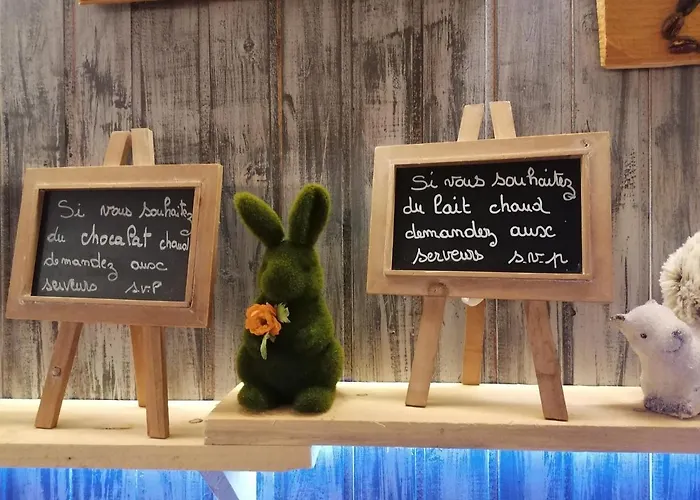 Si vous souhaitez
du chocolat chaud
demandez aux
serveurs s.v.P
Si vous souhaitez
du lait chaud
demandez aux
serveurs s.v.p